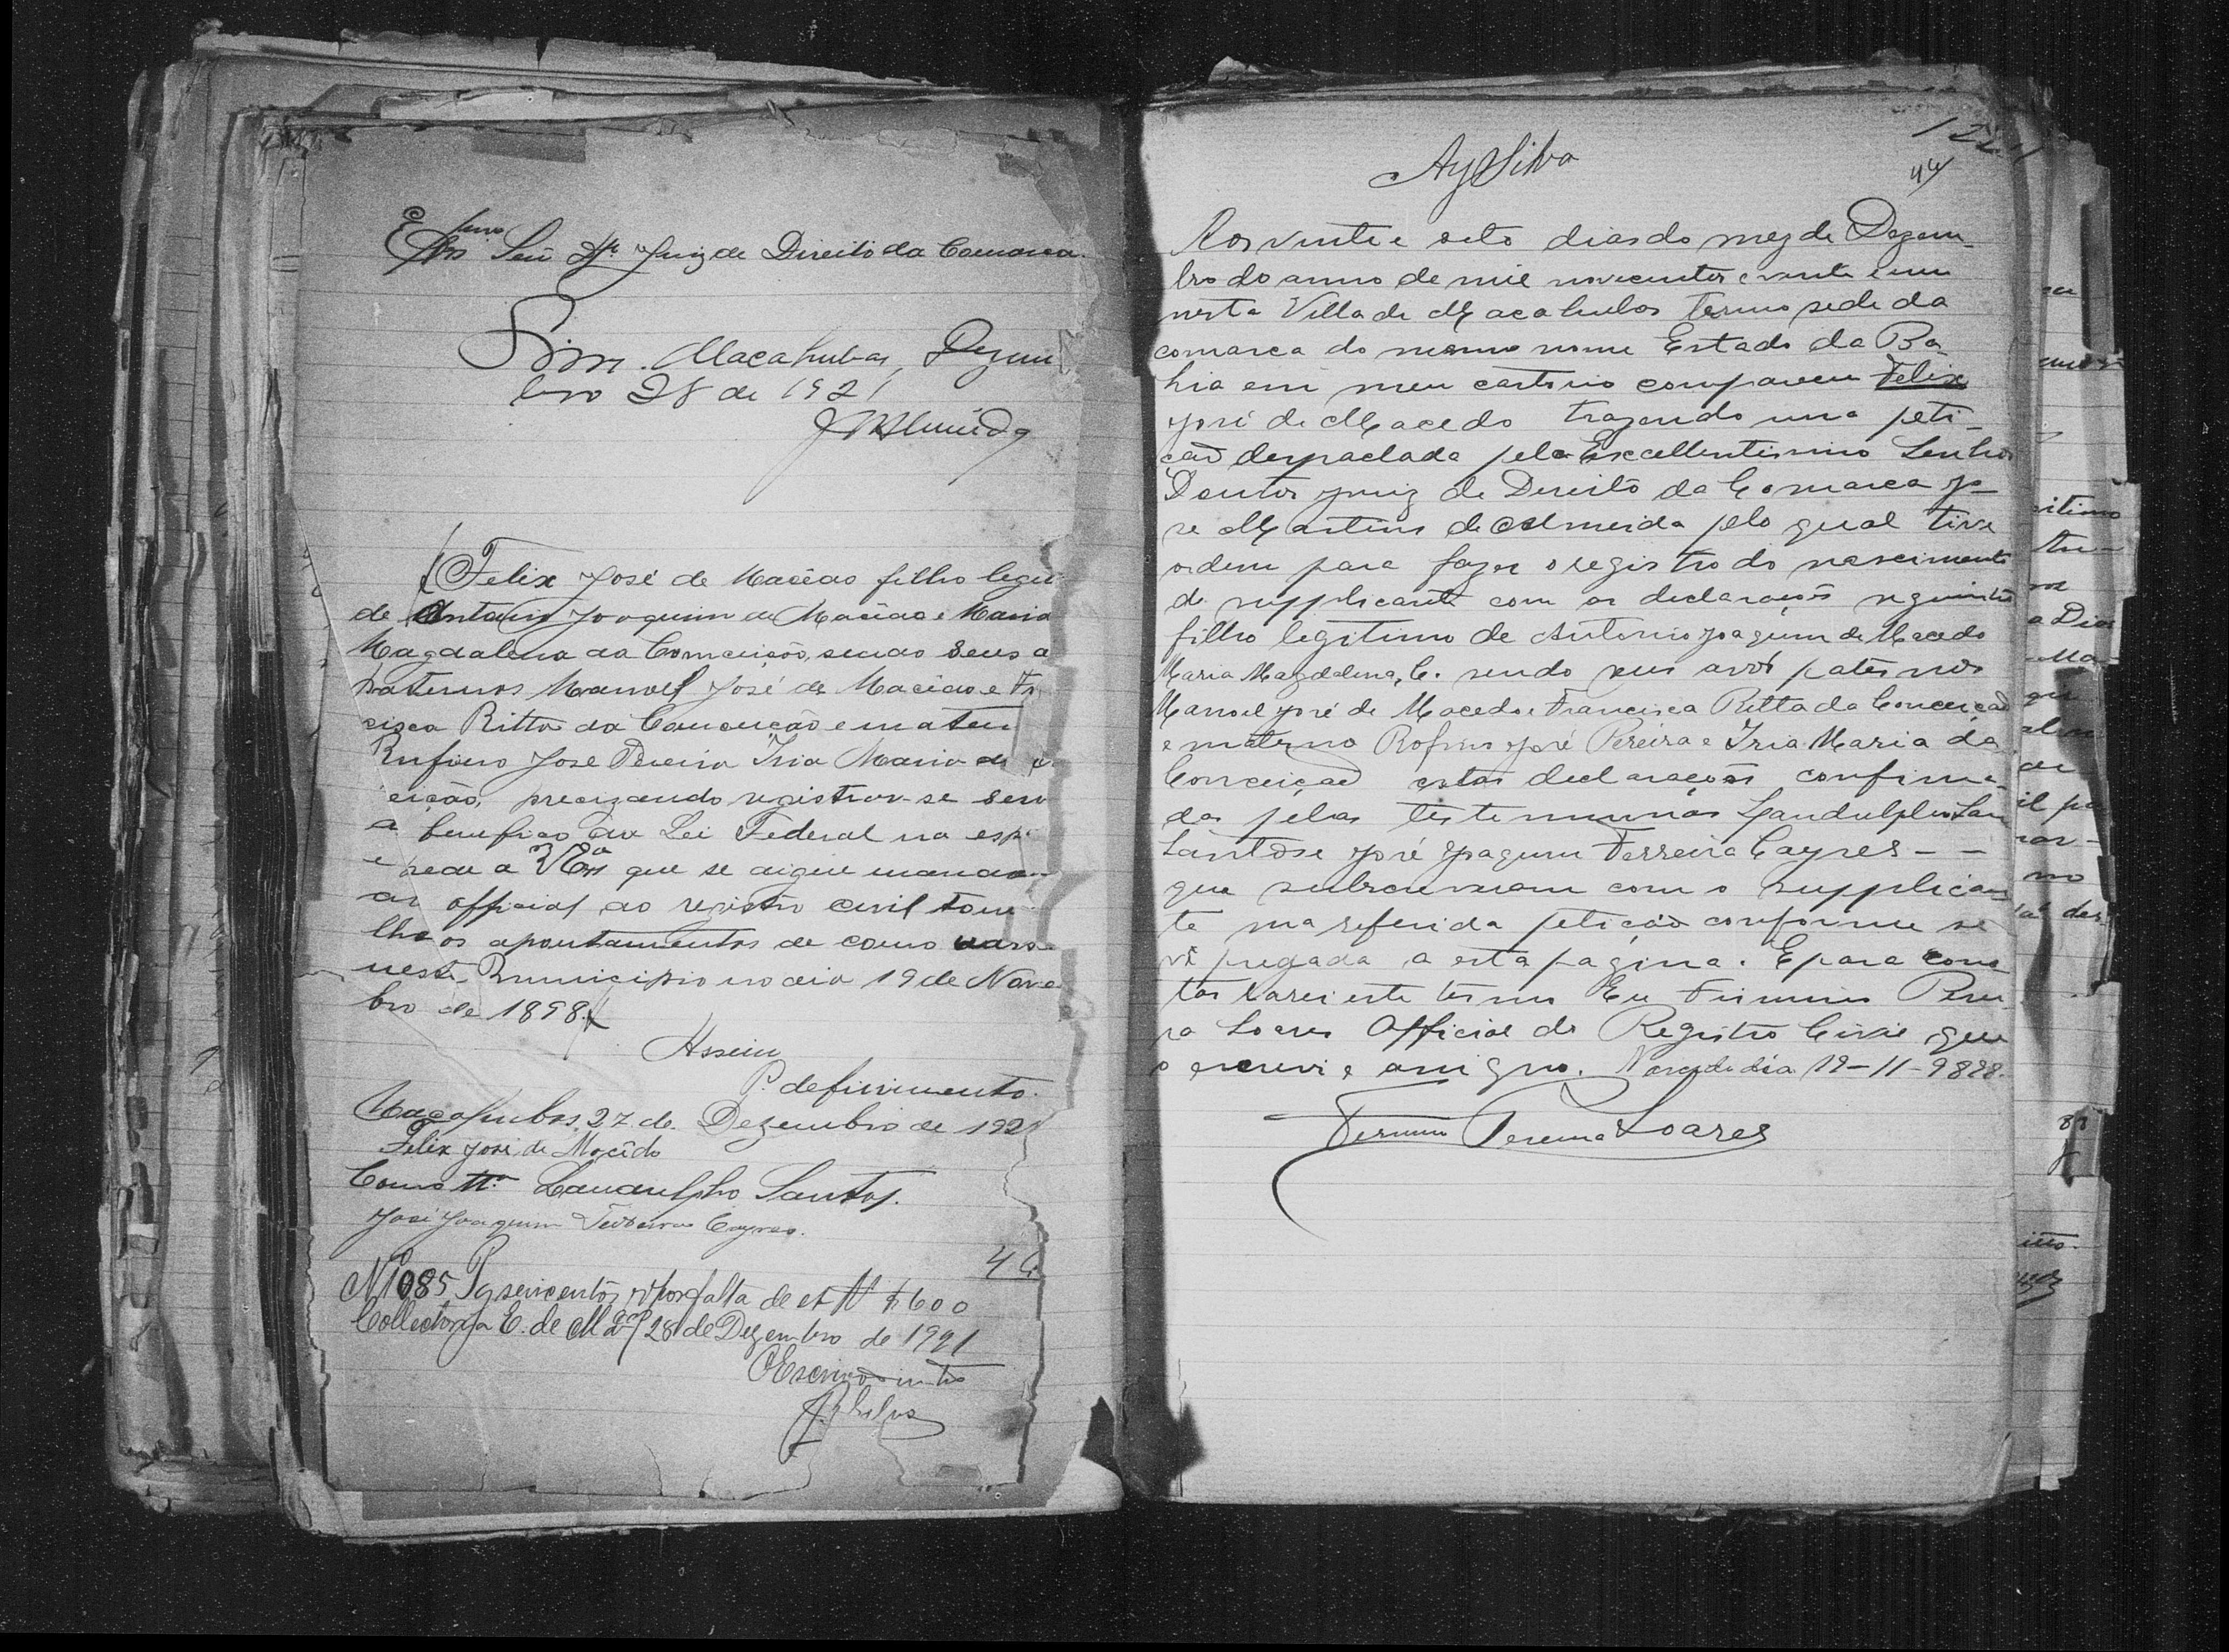 Exmo Señ Dr. Juiz de Direito da Comarca.
Sim. Macahubas, Dezem
bro 28 de 1921
JMAlmeida
Felix José de Macêdo filho legit
de Antonio Joaquim de Macêdo e Maria
Magdalena da Comceição, sendo seus a
paternos Manoel José de Macêdo e Fr
cisca Ritta da Conceição e mater
Rufino Jose Pereira Iria Maria da
ceição, precizando registrar-se sem
a beneficio da Lei Federal na esp
e pede a VExa que se digne mandar
ao official do registro civil tome
lhe os apontamentos de como nasc
neste Municipio no dia 19 de Novem
bro de 1898.
Assim
P. deferimento.
Macahubas, 27 de Dezembro de 1921
Felix José de Macêdo
Como tt. Landulpho Santos.
José Joaquim Ferreira Cayres.
44
N1085 Pg seiscentos rs por falta de et N \$600
Collectoria E. de 28 de Dezembro de 1921
OEscrivão int
Silva
AySilva
122
44
Aos vinte e sete dias do mez de Dezem-
bro do anno de mil novecentos e vinte e um
nesta Villa de Macahubas termo sede da
comarca do mesmo nome Estado da Ba-
hia em meu cartorio compareceu Felix
José de Macedo trazendo uma peti-
ção despachada pelo Excellentissimo Senhor
Doutor Juiz de Direito da Comarca Jo-
se Martins de Almeida pelo qual tive
ordem para fazer o registro do nascimento
do supplicante com as declarações seguintes
filho legitimo de Antonio Joaquim de Macedo
Maria Magdalena, C. sendo seus avós paternos
Manoel José de Macedo e Francisca Ritta da Conceição
e materno Rofino José Pereira e Iria Maria da
Conceição estas declarações confirma-
das pelas testemunas Landulpho
Santos e José Joaquim Ferreira Cayres - -
que subscreveram com o supplican
te na referida petição conforme se
vê pregada a esta pagina. E para cons
tar lavrei este termo Eu Firmino Perei
ra Soares Official do Registro Civil que
o escrevi e assigno. Nascido dia 19-11-9898.
Firmino Pereira Soares